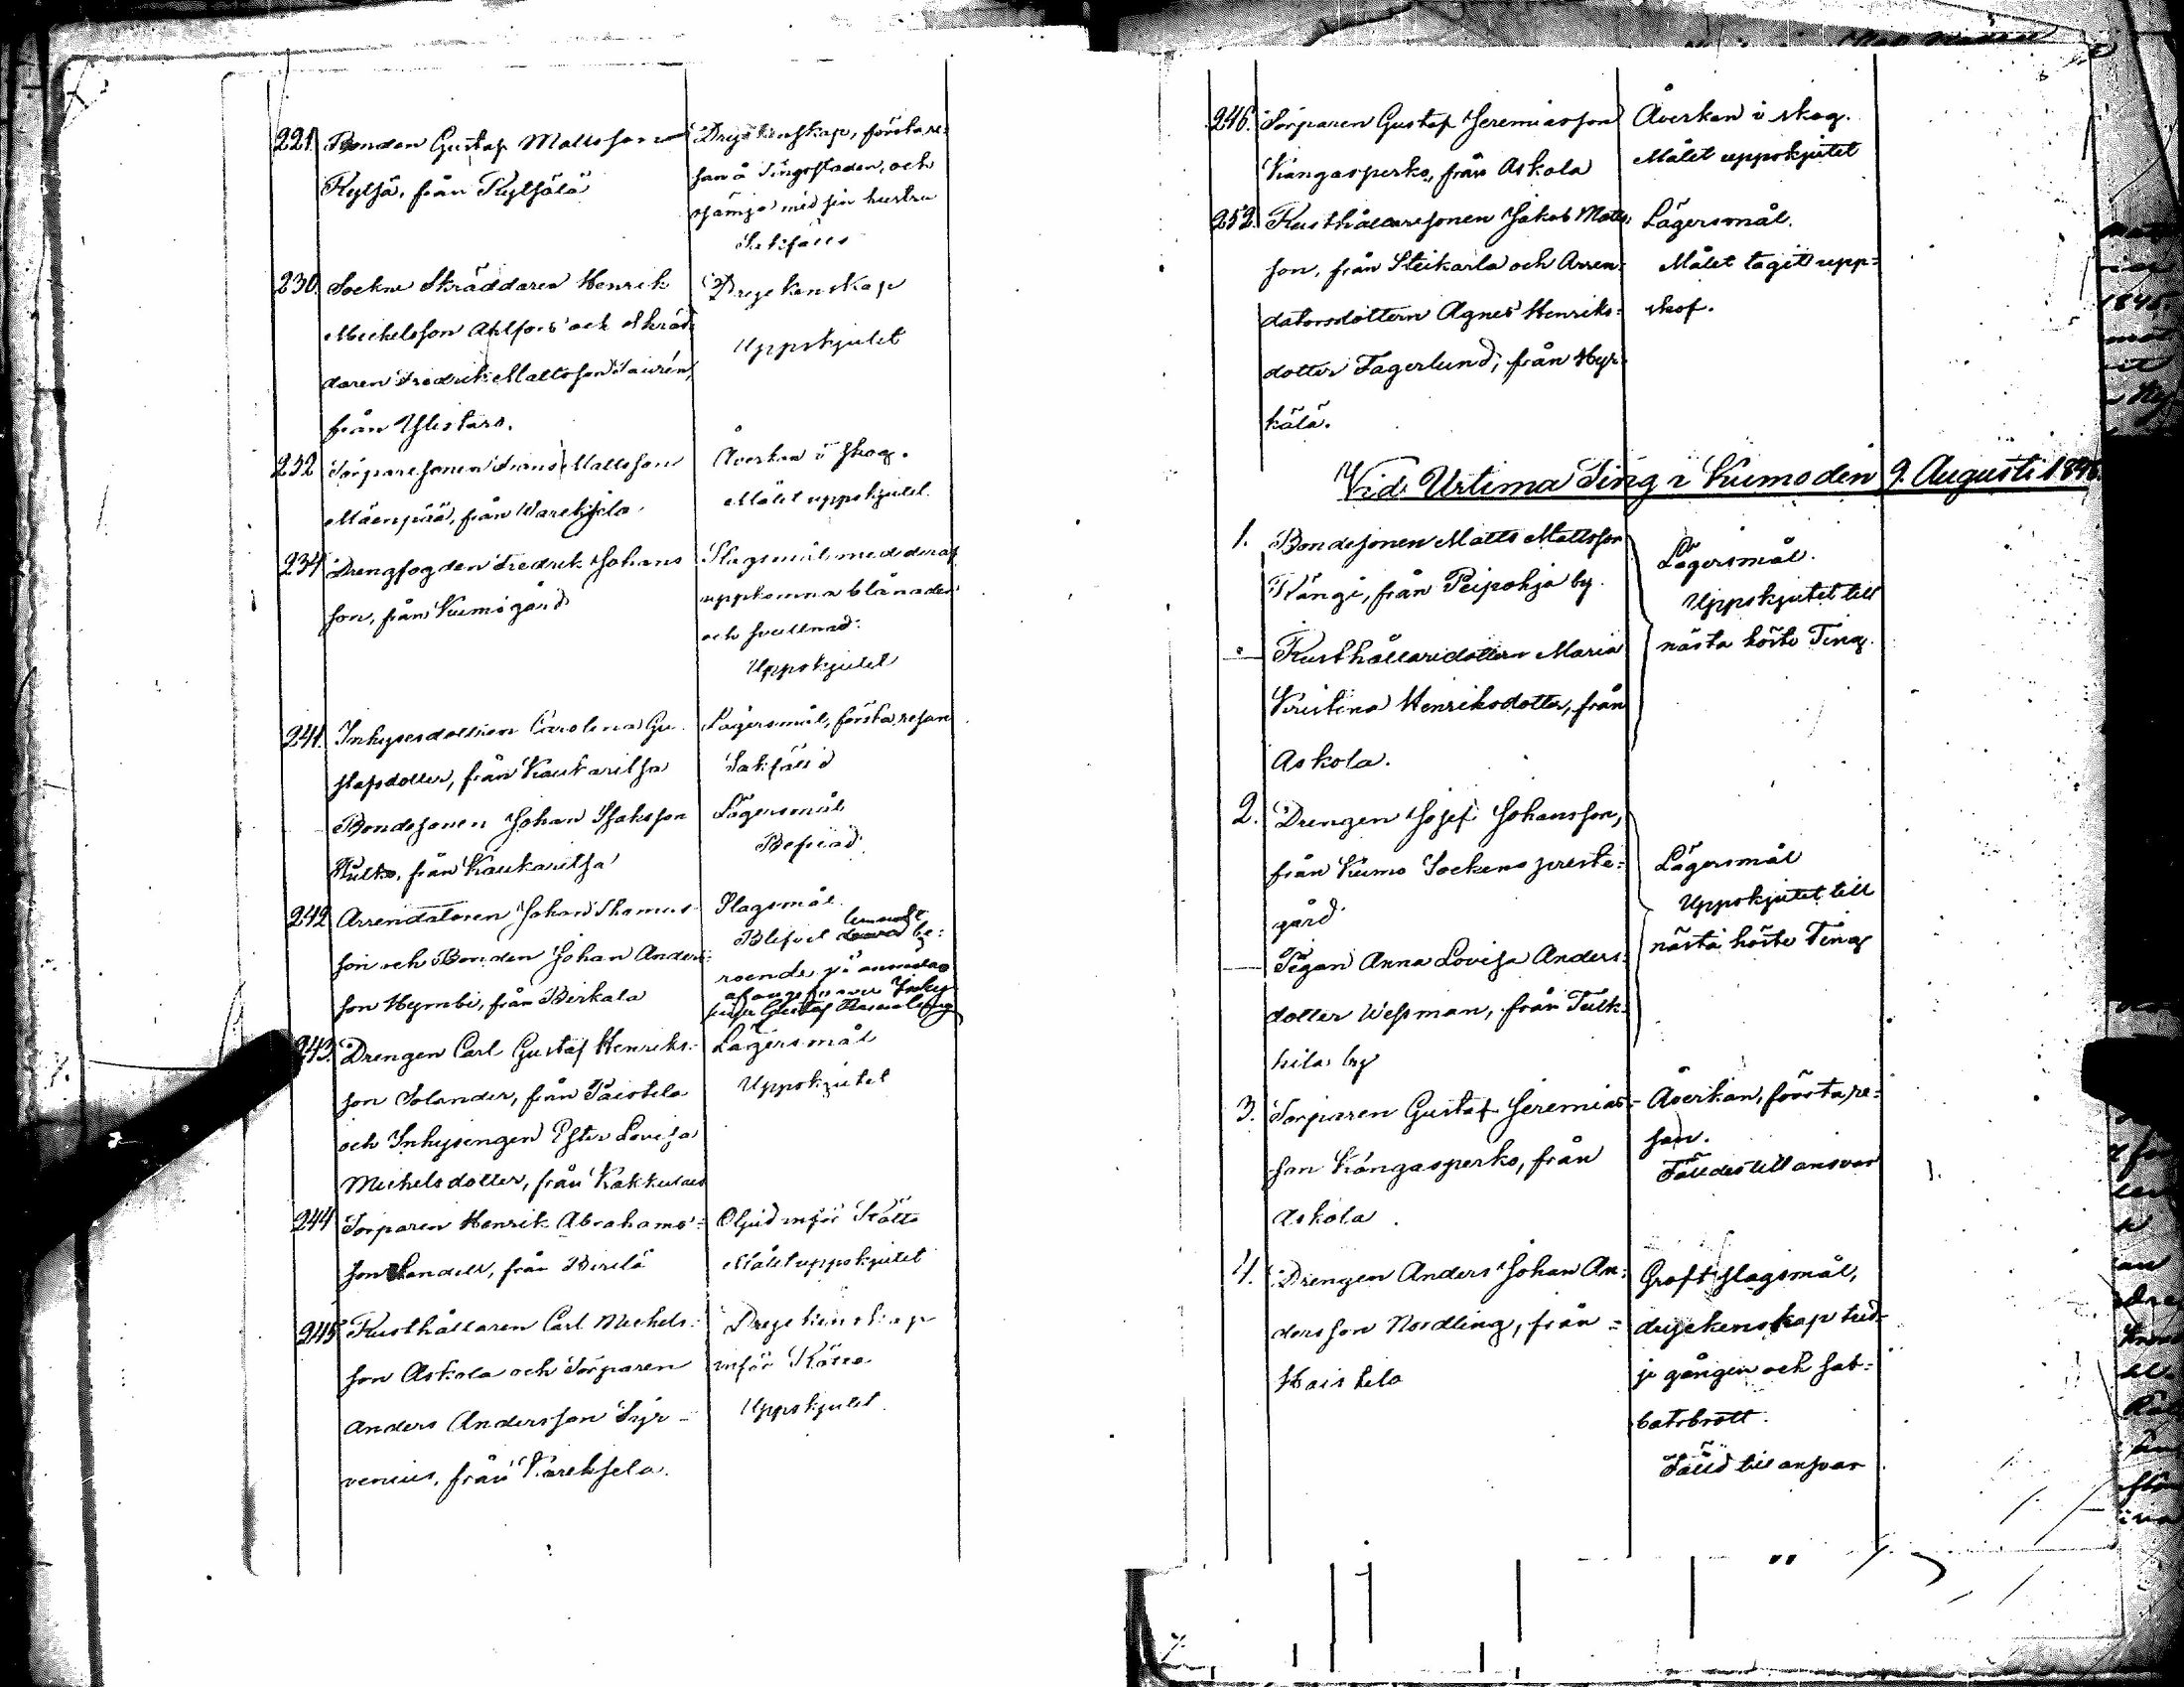 221. Bonden Gustaf Mattsson
Kytjä, från Kytjälä
Dryckenskap, första re=
san å Tingsstaden, och
osämja med sin hustru
Sakfälld
230. Sockne Skräddaren Henrik
Michelsson Ahlfors och Skräd=
daren Fredrik Mattsson Laurén,
från Ylistaro.
Dryckenskap
Uppskjutet
232 Torparesonen Frans Mattsson
Mäenpää, från Wareksela.
Åverkan å skog.
Målet uppskjutet.
234 Drengfogden Fredrik Johans
son, från Kumogård
Slagsmål med deraf
uppkomna blånader
och svullnad.
Uppskjutet
241. Inhysesdottren Carolina Gu
stafsdotter, från Kaukaritsa
Lägersmål, första resan
Sakfälld
Bondesonen Johan Isaksson
Kulko, från Kaukaritsa
Lägersmål
Befriad
242 Arrendatoren Johan Thomas
son och Bonden Johan Anders=
son Hymbi, från Birkala
Slagsmål.
Blifvit lemnadt be=
roende på
Gustaf
243. Drengen Carl Gustaf Henriks=
son Solander, från Paistela
och Inhysingen Ester Lovisa
Michelsdotter, från Kakkulais
Lägersmål
Uppskjutet
244 Torparen Henrik Abrahams=
son Landell, från Berelä
Oljud inför Rätta
Målet uppskjutet
245 Rusthållaren Carl Michels=
son Askola och Torparen
Anders Andersson Syr=
venius, från Kareksela.
Dryckenskap
inför Rätta
Uppskjutet.
246. Torparen Gustaf Jeremiasson
Kangasperko, från Askola
Åverkan å skog.
Målet uppskjutet
252. Rusthållaresonen Jakob Matts=
son, från Steikarla och Arren=
datorsdottern Agnes Henriks=
dotter Fagerlund, från Hyr=
kälä.
Lägersmål.
Målet tagit upp=
skof.
Vid Urtima Ting i Kumo den 9. Augusti 1898.
1. Bondesonen Matts Mattsson
Kångi, från Peipohja by.
Rusthållaredottern Maria
Kristina Henriksdotter, från
Askola.
Lägersmål.
Uppskjutet till
nästa höste Ting.
2. Drengen Josef Johansson,
från Kumo Sockens preste=
gård
Pigan Anna Lovisa Anders=
dotter Wessman, från Tulk=
kila by
Lägersmål
Uppskjutet till
nästa höste Ting
3. Torparen Gustaf Jeremias=
son Kangasperko, från
Askola.
Åverkan, första re=
san.
Fälldes till ansvar
4. Drengen Anders Johan An=
dersson Nordling, från =
Haistila
Groft slagsmål,
dryckenskap tred=
je gången och sab=
batsbrott.
Fälld till ansvar